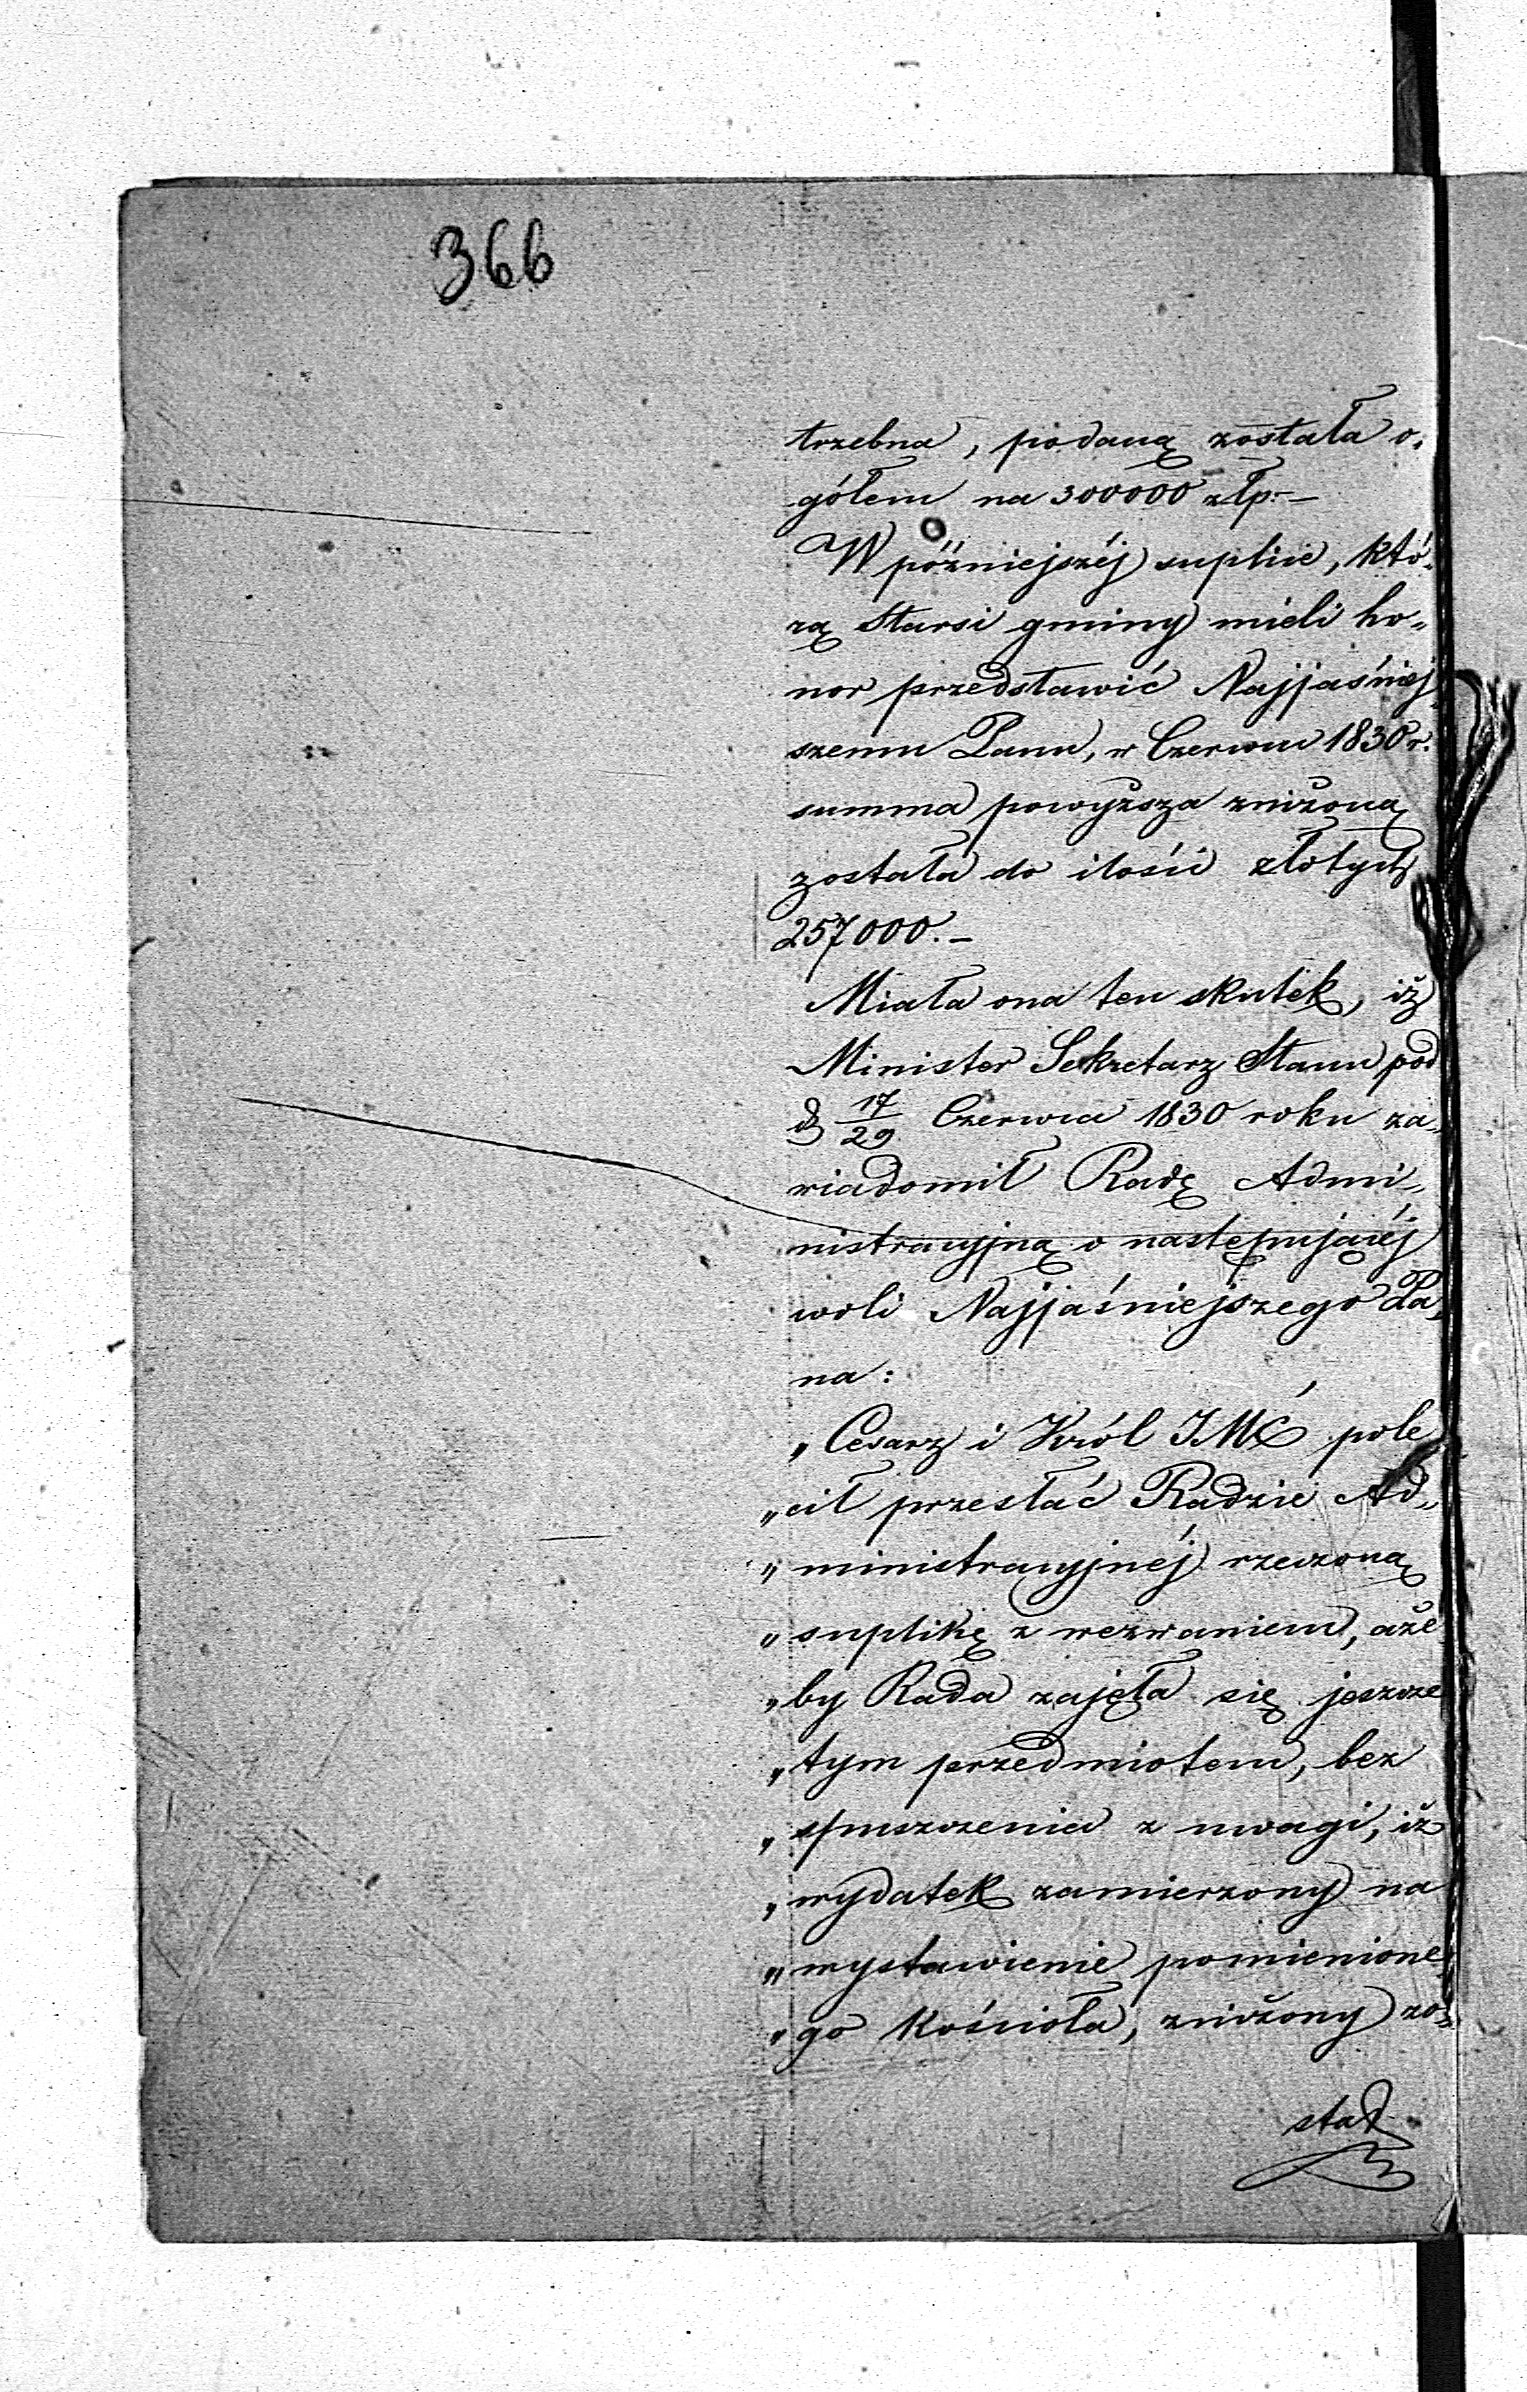 366
trzebna, podaną została o„
gółem na 300000 złp.—
W póżniejszéj suplice, któ„
rą Starsi gminy mieli ho„
nor przedstawić Najjaśniej„
szemu Panu, w Czerwcu 1830 r.
summa powyższa zniżoną
została do ilości złotych
257000.—
Miała ona ten skutek, iż
Minister Sekretarz Stanu pod
d 17/29 Czerwca 1830 roku za„
wiadomił Radę Admi„
nistracyjną o następującéj
woli Najjaśniejszego Pa„
na:
„Cesarz i Król JMĆ pole
„cił przesłać Radzie Ad„
„ministracyjnéj rzeczoną
„suplikę z wezwaniem, aże
„by Rada zajęła się jeszcze
„tym przedmiotem, bez
„spuszczenia z uwagi, iż
„wydatek zamierzony na
„wystawienie pomienione„
„go kościoła, zniżony zo„
stał